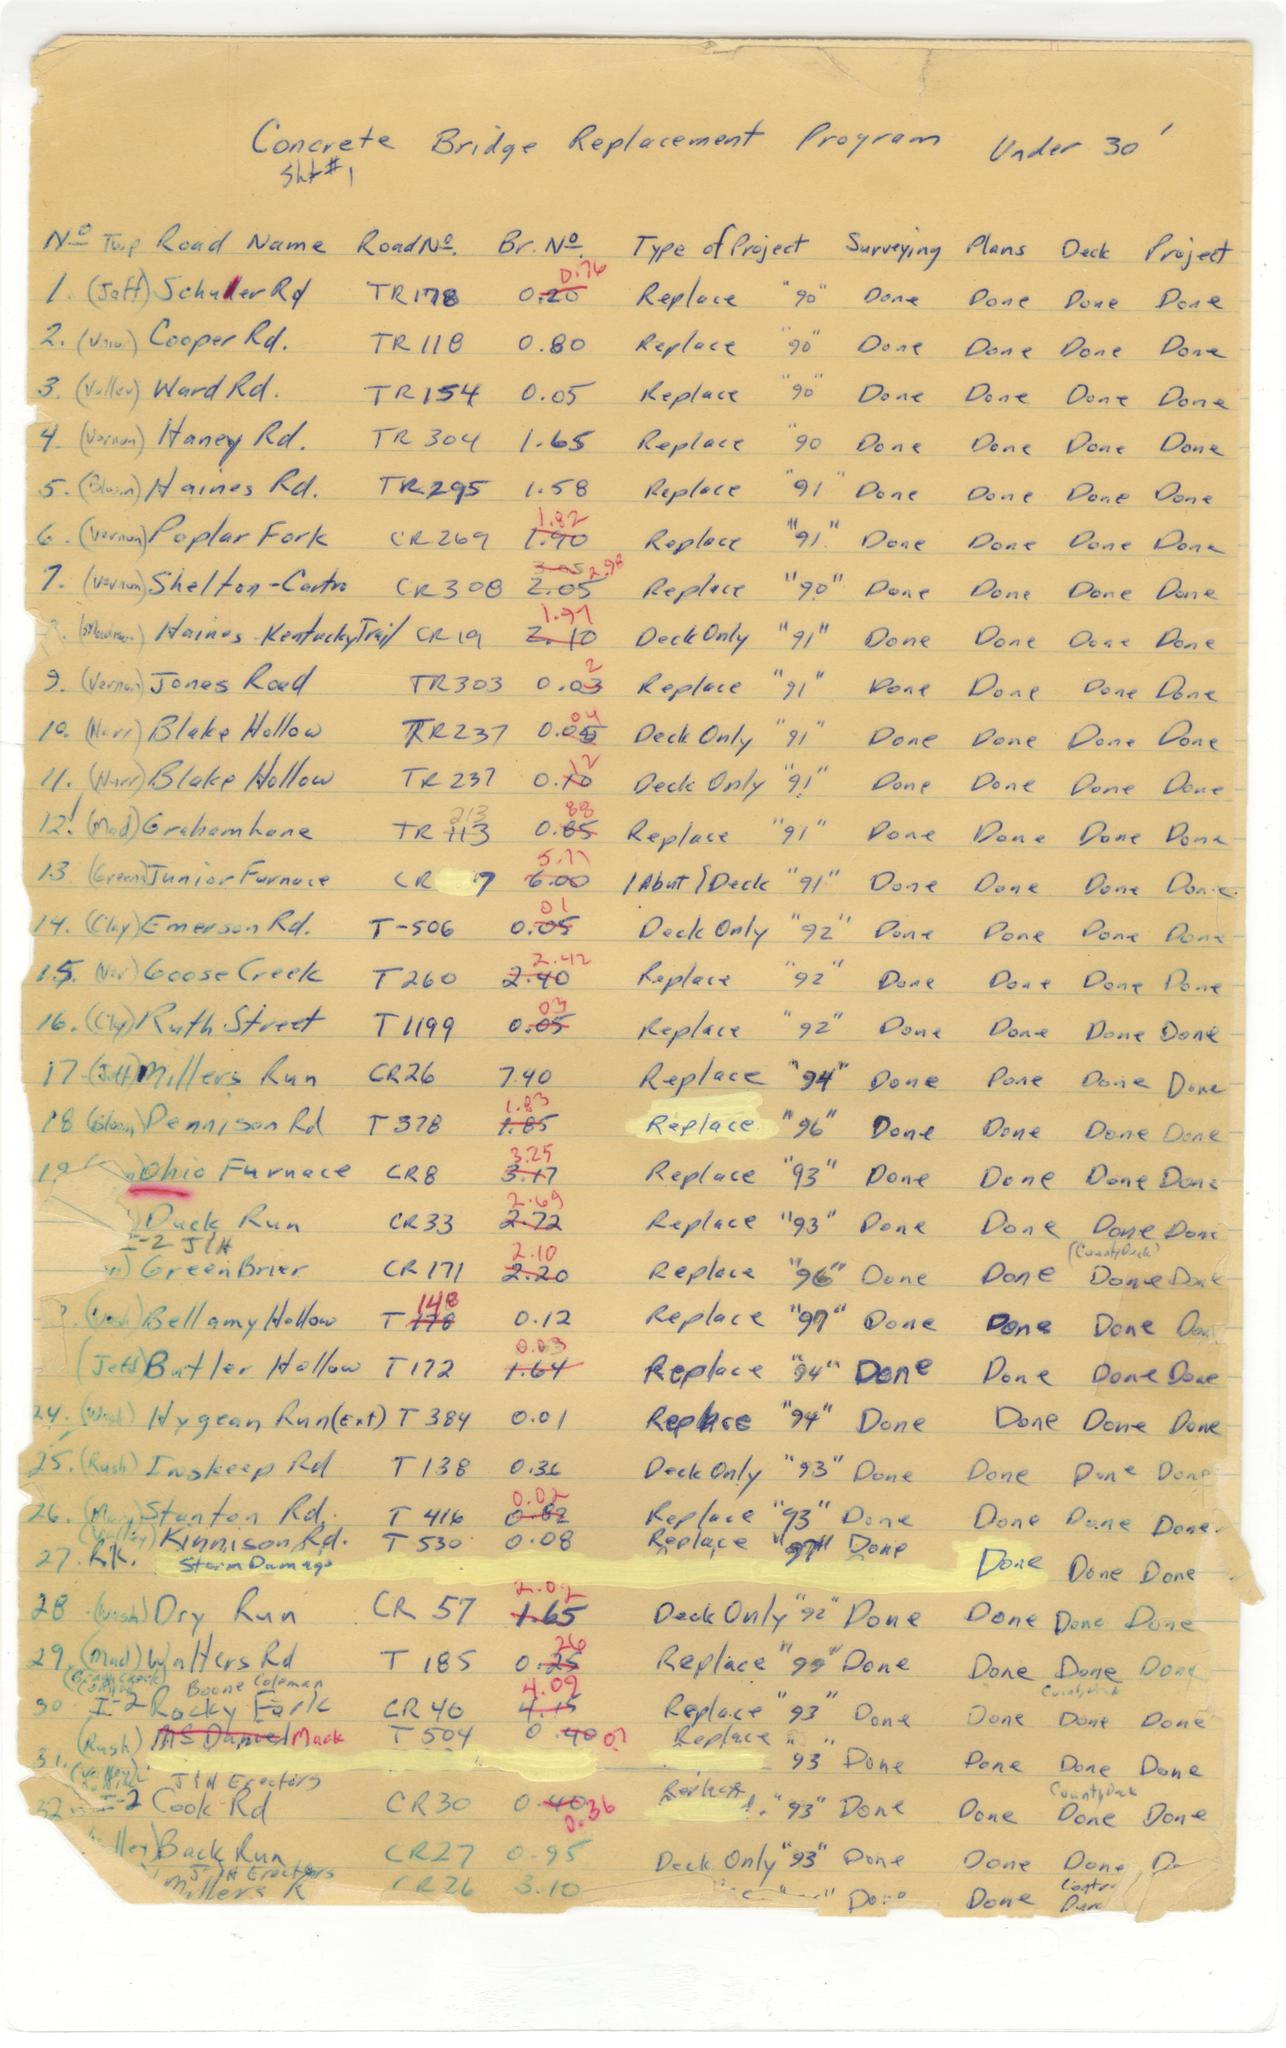 Concrete Bridge Replacement Program Under 30'
Sht #1
Nº Twp Road Name Road Nº. Br. Nº. Type of Project Surveying Plans Deck Project
0.76
1. (Jeff) Schuller Rd TR 178 0.20 Replace "90" Done Done Done Done
2. Cooper Rd. TR 118 0.80 Replace "90" Done Done Done Done
3. (Valley) Ward Rd. TR 154 0.05 Replace "90" Done Done Done Done
4. (Vernon) Haney Rd. TR 304 1.65 Replace "90 Done Done Done Done
5. (Bloom) Haines Rd. TR 295 1.58 Replace "91" Done Done Done Done
1.82
6. (Vernon) Poplar Fork CR 269 1.90 Replace "91" Done Done Done Done
3.05 2.98
7. (Vernon) Shelton-Castro CR 308 2.05 Replace "90" Done Done Done Done
1.97
Haines Kentucky Trail CR 19 2.10 Deck Only "91" Done Done Done Done
2
9. (Vernon) Jones Road TR 303 0.03 Replace "91" Done Done Done Done
04
10. (Harr) Blake Hollow TR 237 0.05 Deck Only "91" Done Done Done Done
12
11. (Harr) Blake Hollow TR 237 0.10 Deck Only "91" Done Done Done Done
213 88
12. (Mad) Graham Lane TR 113 0.85 Replace "91" Done Done Done Done
5.77
13. (Green) Junior Furnace CR 7 6.00 1 Abut & Deck "91" Done Done Done Done
01
14. (Clay) Emerson Rd. T-506 0.05 Deck Only "92" Done Done Done Done
2.42
15. (Ver) Goose Creek T 260 2.40 Replace "92" Done Done Done Done
03
16. (Cly) Ruth Street T 1199 0.05 Replace "92" Done Done Done Done
17. (Jeff) Millers Run CR 26 7.40 Replace "94" Done Done Done Done
1.83
18 (Bloom) Dennison Rd T 378 1.85 Replace "96" Done Done Done Done
3.25
19 Ohio Furnace CR 8 3.17 Replace "93" Done Done Done Done
2.69
Duck Run CR 33 2.72 Replace "93" Done Done Done Done
I-2 J&H 2.10 (County Deck)
Green Brier CR 171 2.20 Replace "96" Done Done Done Done
148
(Wash) Bellamy Hollow T 178 0.12 Replace "97" Done Done Done Done
0.03
(Jeff) Butler Hollow T 172 1.64 Replace "94" Done Done Done Done
24. (Wash) Hygean Run (Ext) T 384 0.01 Replace "94" Done Done Done Done
25. (Rush) Inskeep Rd T 138 0.36 Deck Only "93" Done Done Done Done
0.02
26. Stanton Rd. T 416 0.82 Replace "93" Done Done Done Done
(Valley) Kinnison Rd. T 530 0.08 Replace "97" Done
27. Storm Damage Done Done Done
2.02
28 (Wash) Dry Run CR 57 1.65 Deck Only "92" Done Done Done Done
26
29. (Mad) Walters Rd T 185 0.25 Replace "99" Done Done Done Done
Boone Coleman 4.09 County Deck
30 I-2 Rocky Fork CR 40 4.15 Replace "93" Done Done Done Done
(Rush) McDaniel Mack T 504 0.40 07 Replace "
31. 93" Done Done Done Done
(Valley) J&H Erectors Replace County Deck
32 I-2 Cook Rd CR 30 0.40 "93" Done Done Done Done
0.36
Back Run CR 27 0.95 Deck Only "93" Done Done Done
J&H Erectors
Millers R CR 26 3.10 Done Done